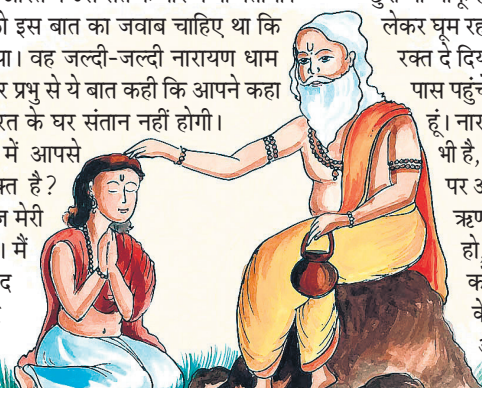 ो इस बात का जवाब चाहिए था कि
या। वह जल्दी-जल्दी नारायण धाम
र प्रभु से ये बात कही कि आपने कहा
रत के घर संतान नहीं होगी।
में आपसे
क्त है?
न मेरी
। मैं
द
लेकर घूम रह
रक्त दे दिय
पास पहुंचे
हूं। नार
भी है,
पर अ
ऋण
हो,
क
के